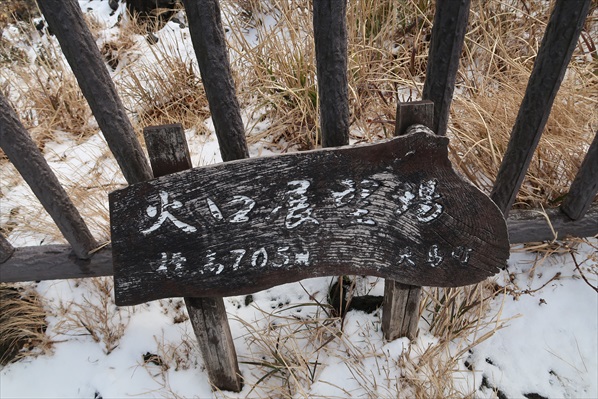 火口展望場
標高705m 大島町